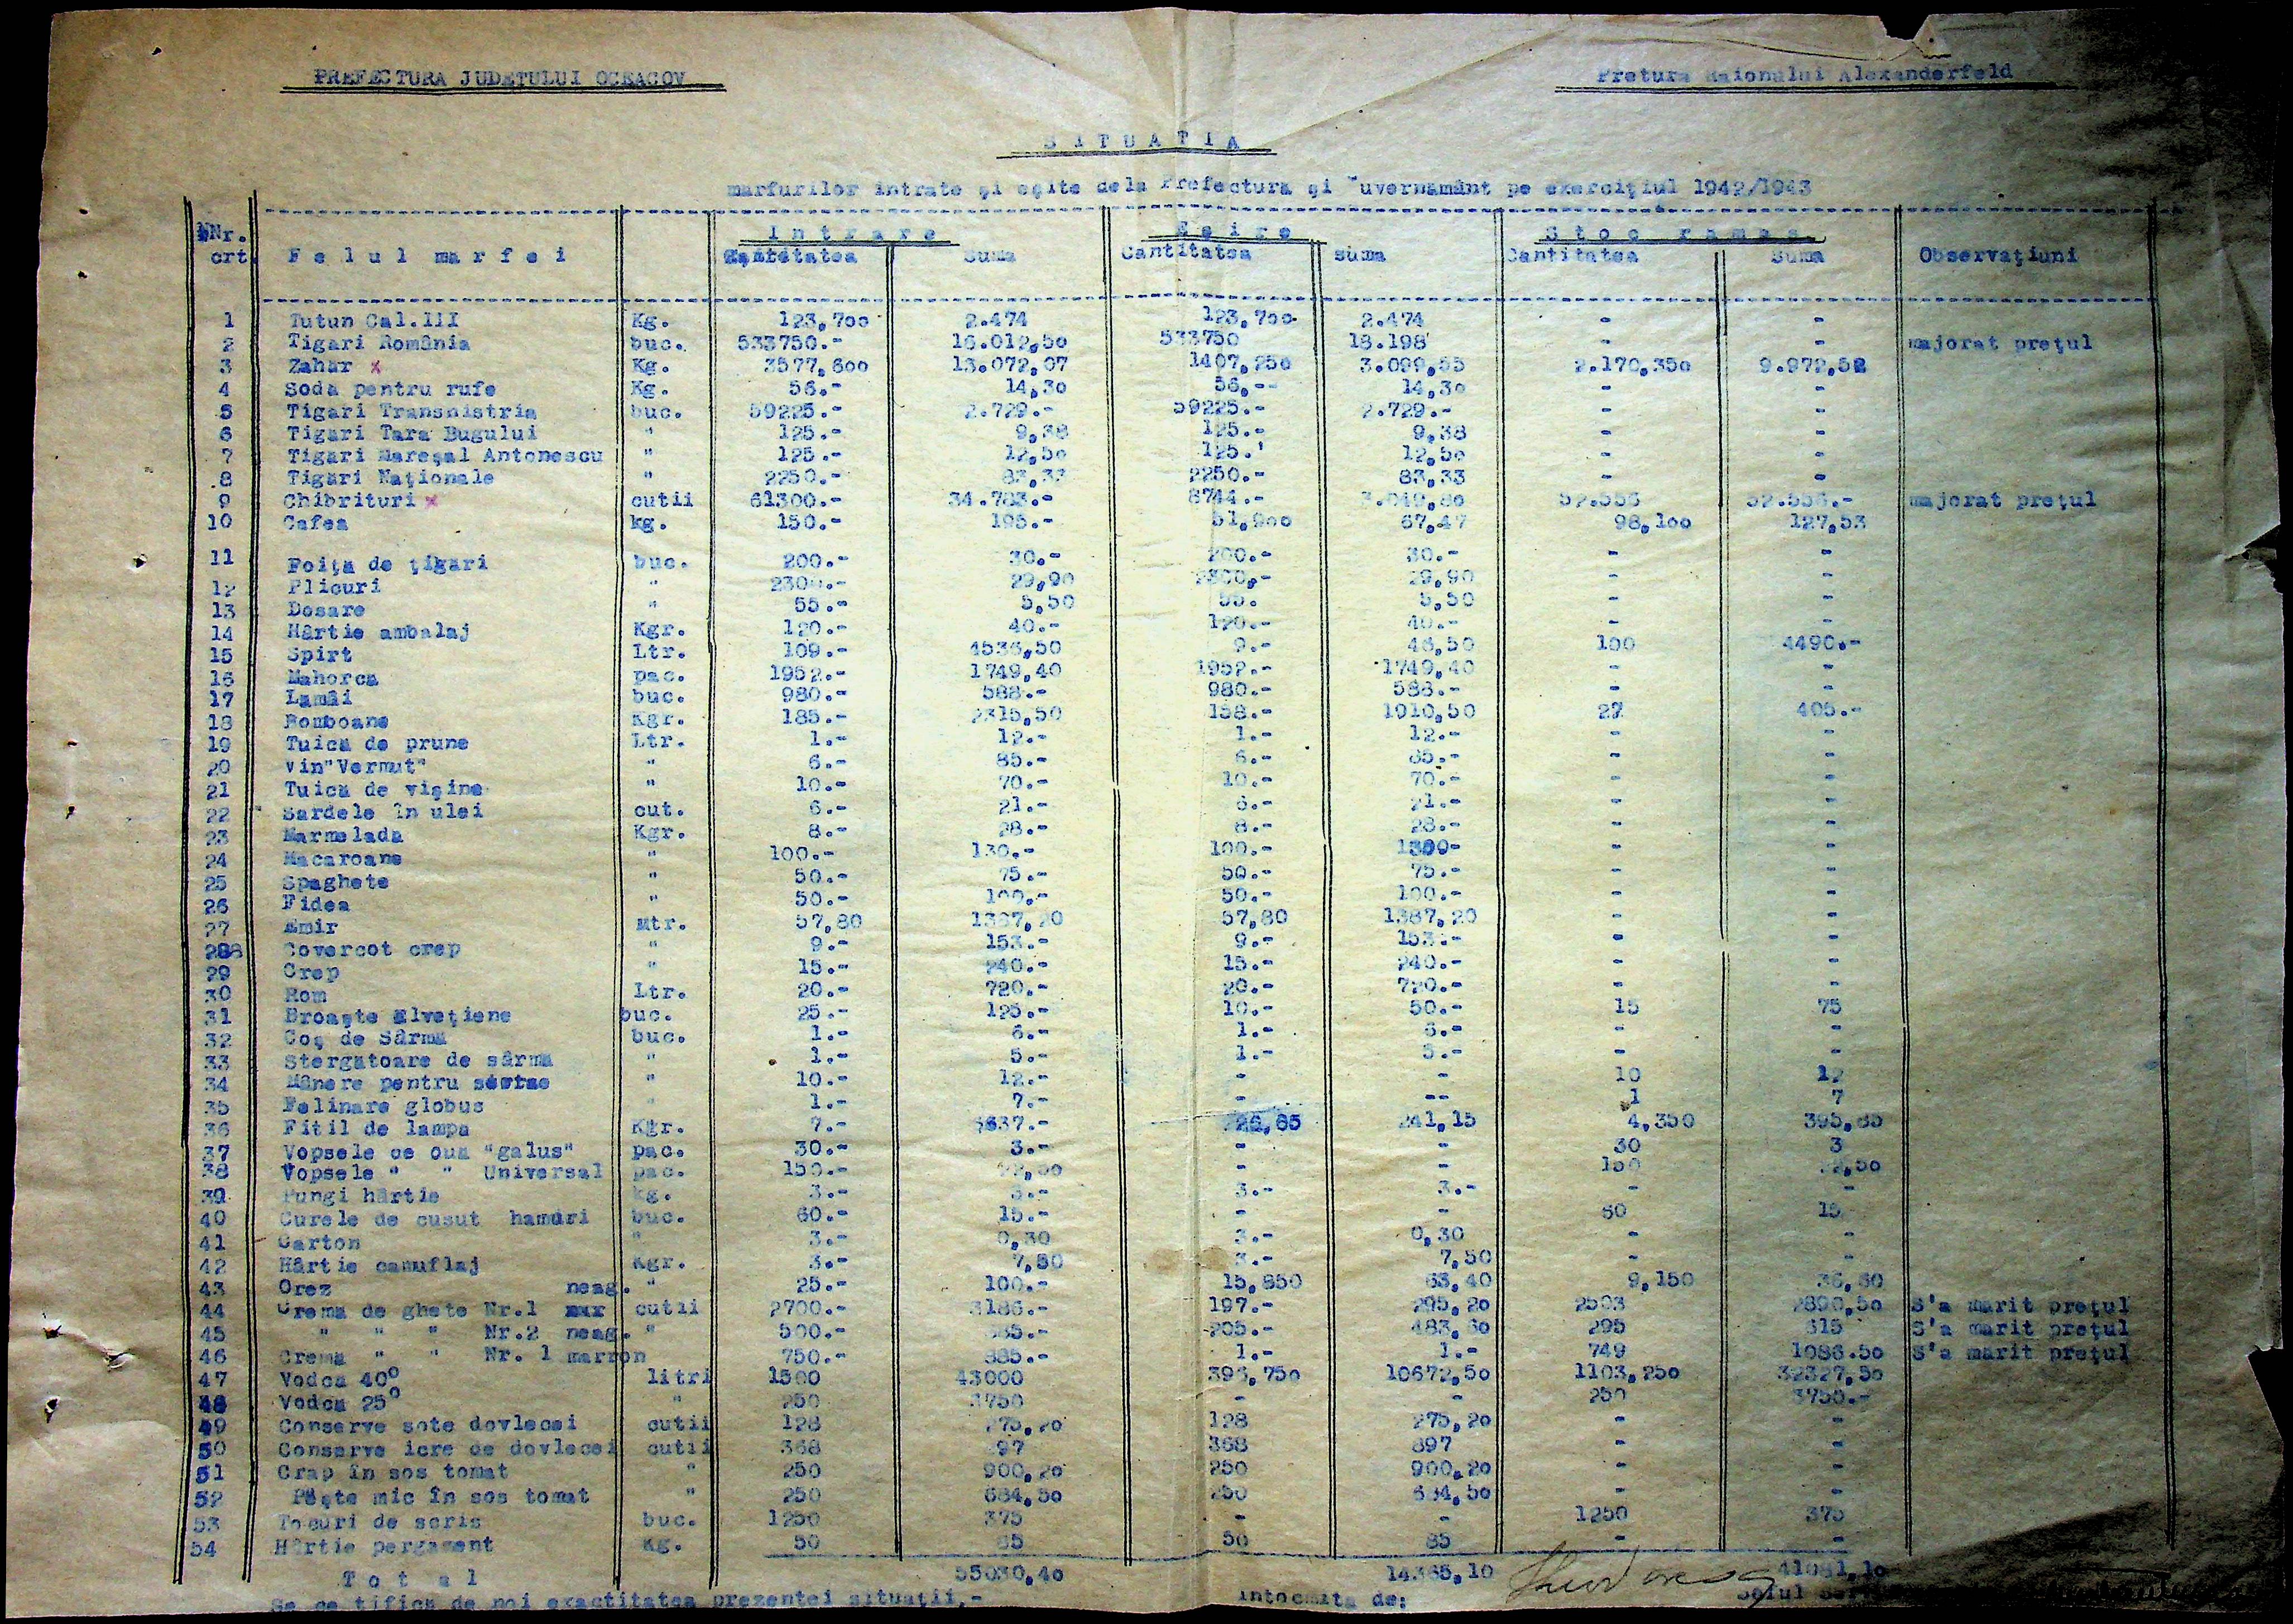 PREFECTURA JUDETULUI OCEACOV Pretura Raionului Alexanderfeld
SITUATIA
marfurilor intrate și eșite dela Prefectura și uvernamânt pe exercițiul 1942/1943
Nr. Intrare Esire Stoc ramas
crt. Felul marfei Cantitatea Suma Cantitatea suma Cantitatea suma Observațiuni
1 Tutun Cal.III Kg. 123,700 2.474 123,700 2.474 - -
2 Tigari România buc. 533750.- 16.012,50 533750 18.198 - - majorat prețul
3 Zahar x Kg. 3577,600 13.072,07 1407,250 3.099,55 2.170,350 9.972,52
4 Soda pentru rufe Kg. 56.- 14,30 56,-- 14,30 - -
5 Tigari Transnistria buc. 59225.- 2.729.- 59225.- 2.729.- - -
6 Tigari Tara Bugului " 125.- 9,38 125.- 9,38 - -
7 Tigari Mareșal Antonescu " 125.- 12,50 125.' 12,50 - -
8 Tigari Naționale " 2250.- 83,33 2250.- 83,33 - -
9 Chibrituri x cutii 61300.- 34.783.- 8744.- 52.556 52.556.- majorat prețul
10 Cafea kg. 150.- 195.- 51,900 67,47 98,100 127,53
11 Foița de țigari buc. 200.- 30.- 200.- 30.- - -
12 Plicuri " 2300.- 29,90 2300,- 29,90 - -
13 Dosare " 55.- 5,50 55. 5,50 - -
14 Hârtie ambalaj Kgr. 120.- 40.- 120.- 40.- - -
15 Spirt Ltr. 109.- 4536,50 9.- 46,50 100 4490.-
16 Mahorca pac. 1952.- 1749,40 1952.- 1749,40 - -
17 Lamâi buc. 980.- 588.- 980.- 588.- - -
18 Bomboane Kgr. 185.- 2315,50 158.- 1910,50 27 405.-
19 Tuica de prune Ltr. 1.- 12.- 1.- 12.- - -
20 Vin"Vermut" " 6.- 85.- 6.- 85.- - -
21 Tuica de vișine " 10.- 70.- 10.- 70.- - -
22 Sardele în ulei cut. 6.- 21.- 6.- 21.- - -
23 Marmelada Kgr. 8.- 28.- 8.- 28.- - -
24 Macaroane " 100.- 130.- 100.- 1300- - -
25 Spaghete " 50.- 75.- 50.- 75.- - -
26 Fidea " 50.- 100.- 50.- 100.- - -
27 Emir Mtr. 57,80 1387,20 57,80 1387,20 - -
288 Covercot crep " 9.- 153.- 9.- 153.- - -
29 Crep " 15.- 240.- 15.- 240.- - -
30 Rom Ltr. 20.- 720.- 20.- 720.- - -
31 Broaște Elvețiene buc. 25.- 125.- 10.- 50.- 15 75
32 Coș de Sârma buc. 1.- 6.- 1.- 6.- - -
33 Stergatoare de sârma " 1.- 5.- 1.- 5.- - -
34 Mânere pentru " 10.- 12.- - - 10 12
35 Felinare globus " 1.- 7.- - -- 1 7
36 Fitil de lampa Kgr. 7.- 637.- 26,65 241,15 4,350 395,85
37 Vopsele de oua "galus" pac. 30.- 3.- - - 30 3
38 Vopsele " " Universal pac. 150.- 22,50 - - 150 22,50
39 Pungi hârtie kg. 3.- 3.- 3.- 3.- - -
40 Curele de cusut hamuri buc. 60.- 15.- - - 60 15
41 Carton " 3.- 0,30 3.- 0,30 - -
42 Hârtie camuflaj Kgr. 3.- 7,50 3.- 7,50 - -
43 Orez neag. " 25.- 100.- 15,850 63,40 9,150 36,60
44 Crema de ghete Nr.1 mar cutii 2700.- 3186.- 197.- 295,20 2503 2890,50 S'a marit prețul
45 " " " Nr.2 neag. " 500.- 205.- 483,60 295 S'a marit prețul
46 Crema " " Nr. 1 marron 750.- 885.- 1.- 1.- 749 1086.50 S'a marit prețul
47 Vodca 40⁰ litri 1500 43000 396,750 10672,50 1103,250 32327,50
48 Vodca 25⁰ " 250 3750 - - 250 3750.-
49 Conserve sote dovlecei cutii 128 275,20 128 275,20 - -
50 Conserve icre de dovlecei cutii 368 897 368 897 - -
51 Crap în sos tomat " 250 900,20 250 900,20 - -
52 Pește mic în sos tomat " 250 684,50 250 684,50 - -
53 Tocuri de scris buc. 1250 375 - - 1250 375
54 Hârtie pergament Kg. 50 85 50 85 - -
Total 55030,40 14365,10 41081,10
Se certifica de noi exactitatea prezentei situații.- Intocmita de: